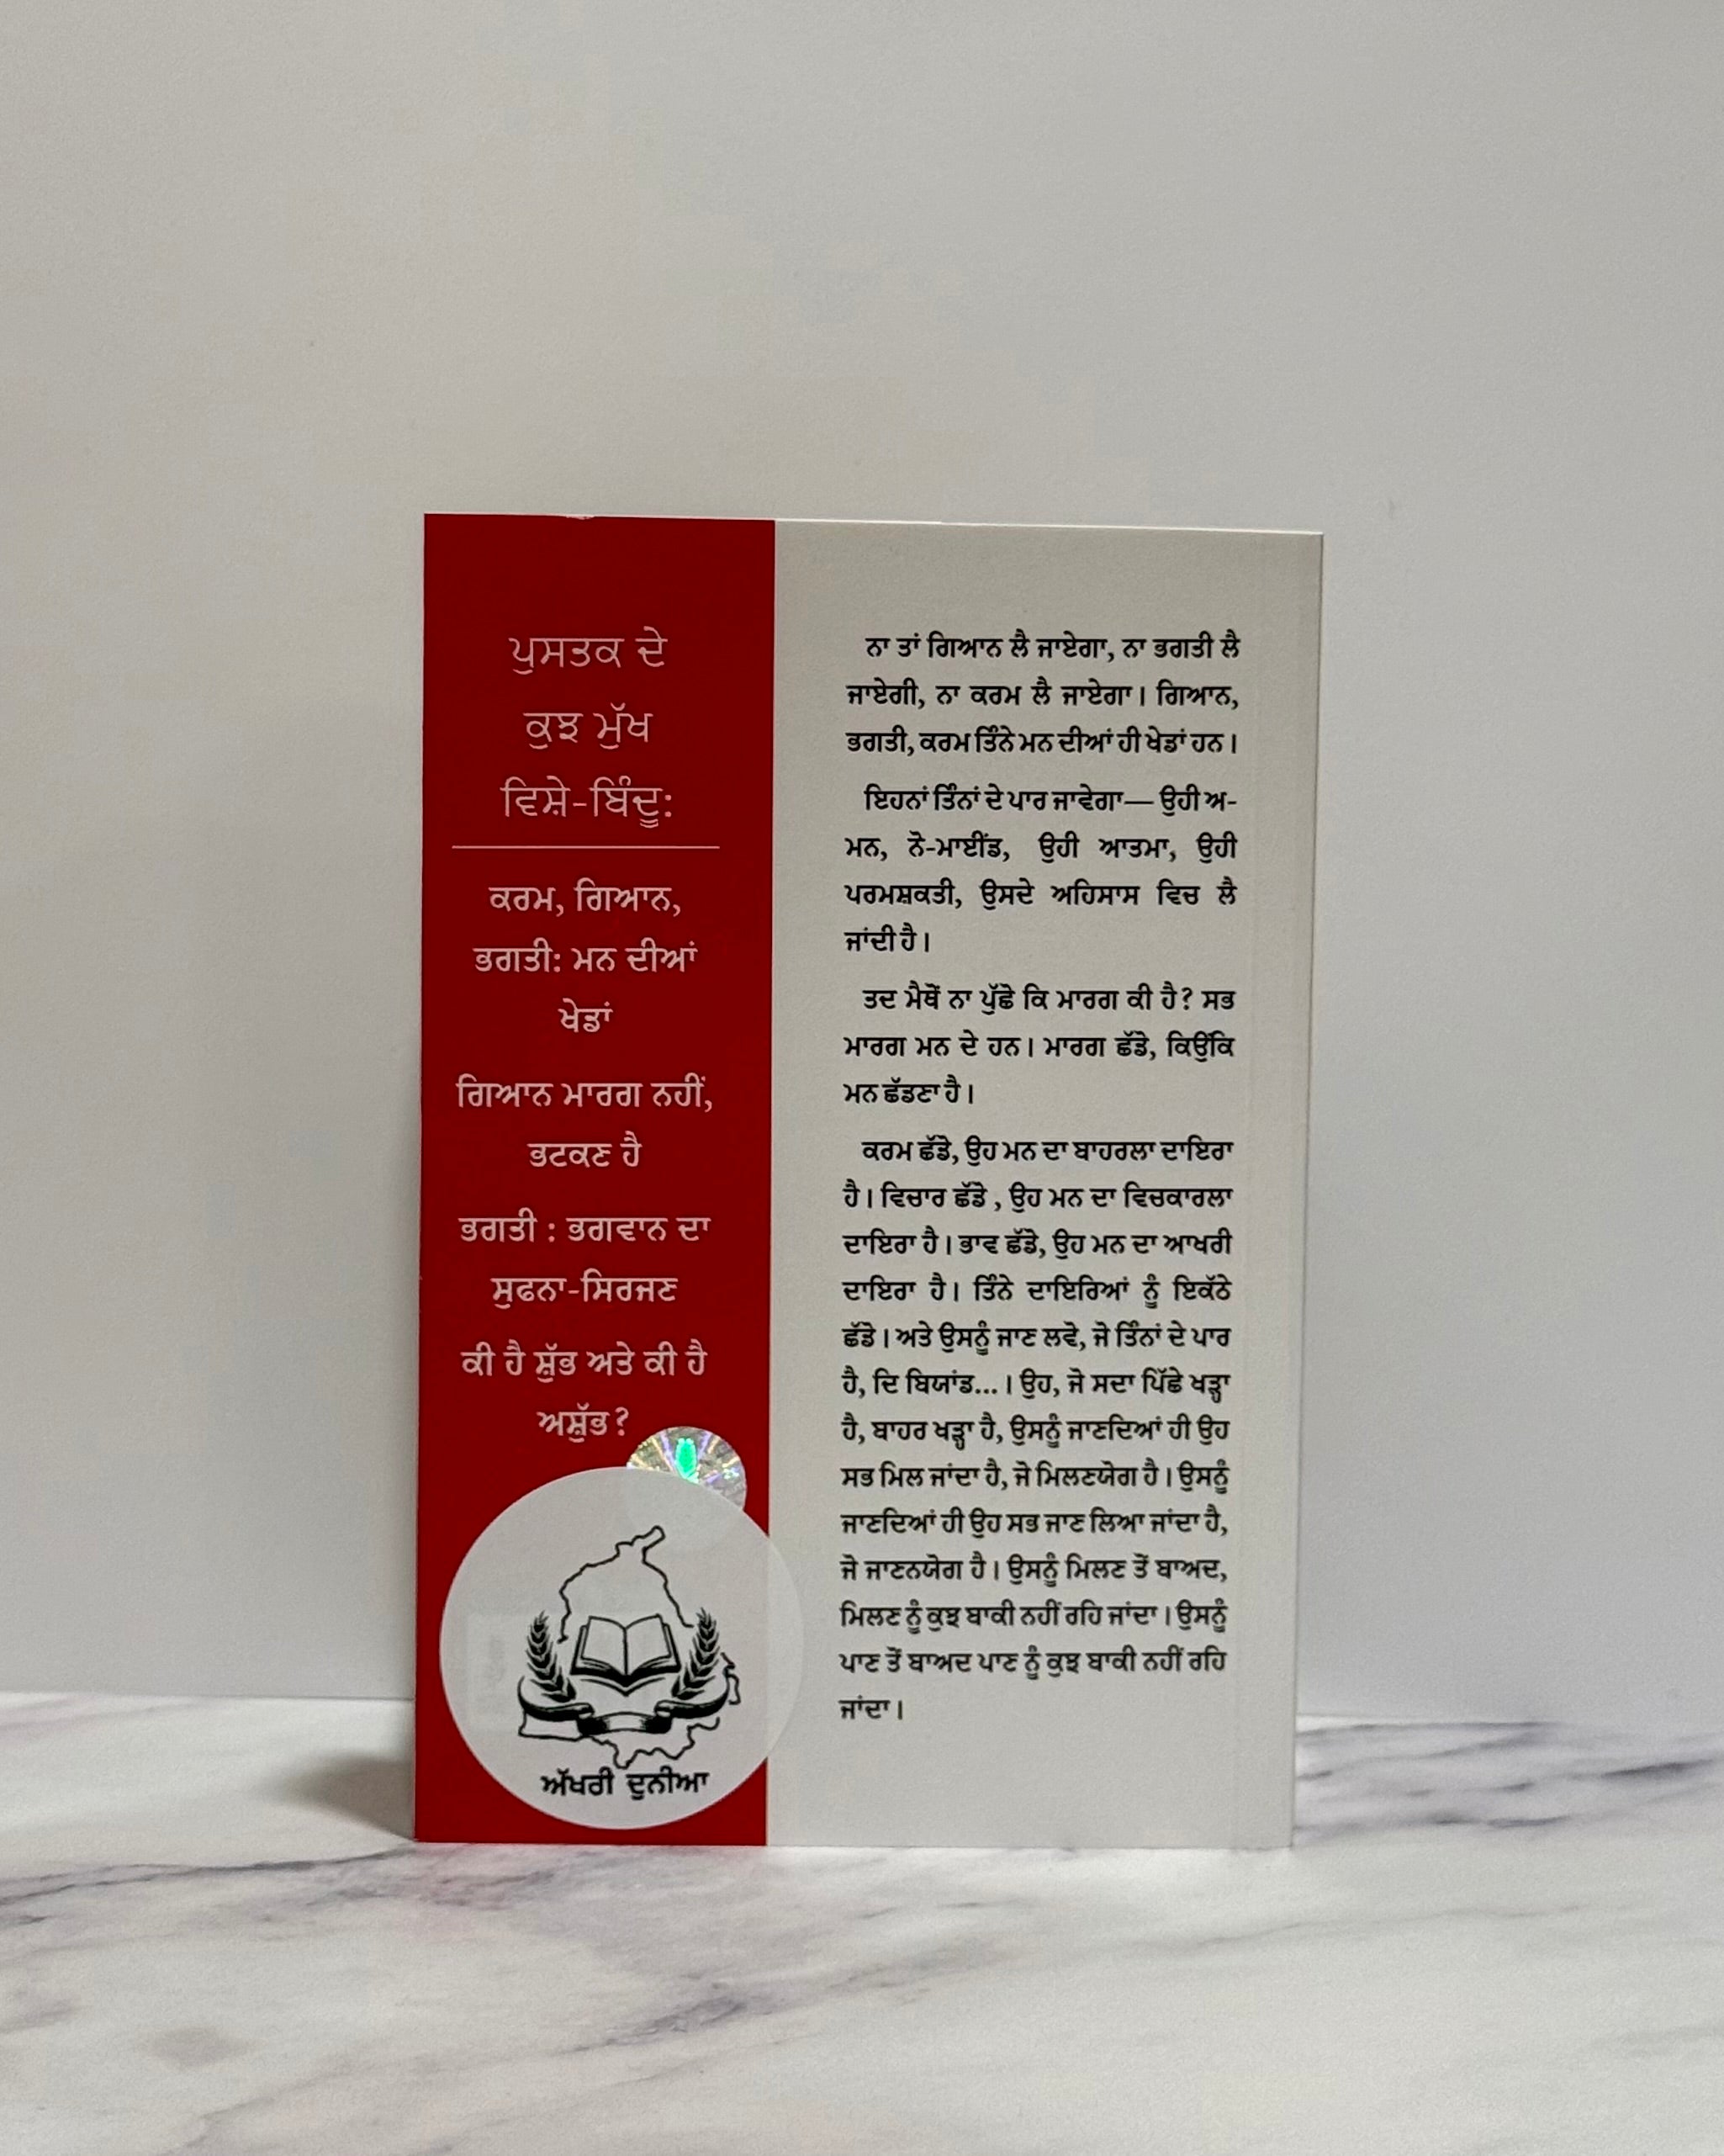 ਪੁਸਤਕ ਦੇ
ਕੁਝ ਮੁੱਖ
ਵਿਸ਼ੇ-ਬਿੰਦੂ:
ਕਰਮ, ਗਿਆਨ,
ਭਗਤੀ: ਮਨ ਦੀਆਂ
ਖੇਡਾਂ
ਗਿਆਨ ਮਾਰਗ ਨਹੀਂ,
ਭਟਕਣ ਹੈ
ਭਗਤੀ : ਭਗਵਾਨ ਦਾ
ਸੁਫਨਾ-ਸਿਰਜਣ
ਕੀ ਹੈ ਸ਼ੁੱਭ ਅਤੇ ਕੀ ਹੈ
ਅਸ਼ੁੱਭ?
ਅੱਖਰੀ ਦੁਨੀਆ
ਨਾ ਤਾਂ ਗਿਆਨ ਲੈ ਜਾਏਗਾ, ਨਾ ਭਗਤੀ ਲੈ
ਜਾਏਗੀ, ਨਾ ਕਰਮ ਲੈ ਜਾਏਗਾ। ਗਿਆਨ,
ਭਗਤੀ, ਕਰਮ ਤਿੰਨੇ ਮਨ ਦੀਆਂ ਹੀ ਖੇਡਾਂ ਹਨ।
ਇਹਨਾਂ ਤਿੰਨਾਂ ਦੇ ਪਾਰ ਜਾਵੇਗਾ— ਉਹੀ ਅ-
ਮਨ, ਨੋ-ਮਾਈਂਡ, ਉਹੀ ਆਤਮਾ, ਉਹੀ
ਪਰਮਸ਼ਕਤੀ, ਉਸਦੇ ਅਹਿਸਾਸ ਵਿਚ ਲੈ
ਜਾਂਦੀ ਹੈ।
ਤਦ ਮੈਥੋਂ ਨਾ ਪੁੱਛੋ ਕਿ ਮਾਰਗ ਕੀ ਹੈ? ਸਭ
ਮਾਰਗ ਮਨ ਦੇ ਹਨ। ਮਾਰਗ ਛੱਡੋ, ਕਿਉਂਕਿ
ਮਨ ਛੱਡਣਾ ਹੈ।
ਕਰਮ ਛੱਡੋ, ਉਹ ਮਨ ਦਾ ਬਾਹਰਲਾ ਦਾਇਰਾ
ਹੈ। ਵਿਚਾਰ ਛੱਡੋ , ਉਹ ਮਨ ਦਾ ਵਿਚਕਾਰਲਾ
ਦਾਇਰਾ ਹੈ। ਭਾਵ ਛੱਡੋ, ਉਹ ਮਨ ਦਾ ਆਖਰੀ
ਦਾਇਰਾ ਹੈ। ਤਿੰਨੇ ਦਾਇਰਿਆਂ ਨੂੰ ਇਕੱਠੇ
ਛੱਡੋ। ਅਤੇ ਉਸਨੂੰ ਜਾਣ ਲਵੋ, ਜੋ ਤਿੰਨਾਂ ਦੇ ਪਾਰ
ਹੈ, ਦਿ ਬਿਯਾਂਡ...। ਉਹ, ਜੋ ਸਦਾ ਪਿੱਛੇ ਖੜ੍ਹਾ
ਹੈ, ਬਾਹਰ ਖੜ੍ਹਾ ਹੈ, ਉਸਨੂੰ ਜਾਣਦਿਆਂ ਹੀ ਉਹ
ਸਭ ਮਿਲ ਜਾਂਦਾ ਹੈ, ਜੋ ਮਿਲਣਯੋਗ ਹੈ। ਉਸਨੂੰ
ਜਾਣਦਿਆਂ ਹੀ ਉਹ ਸਭ ਜਾਣ ਲਿਆ ਜਾਂਦਾ ਹੈ,
ਜੋ ਜਾਣਨਯੋਗ ਹੈ। ਉਸਨੂੰ ਮਿਲਣ ਤੋਂ ਬਾਅਦ,
ਮਿਲਣ ਨੂੰ ਕੁਝ ਬਾਕੀ ਨਹੀਂ ਰਹਿ ਜਾਂਦਾ। ਉਸਨੂੰ
ਪਾਣ ਤੋਂ ਬਾਅਦ ਪਾਣ ਨੂੰ ਕੁਝ ਬਾਕੀ ਨਹੀਂ ਰਹਿ
ਜਾਂਦਾ।